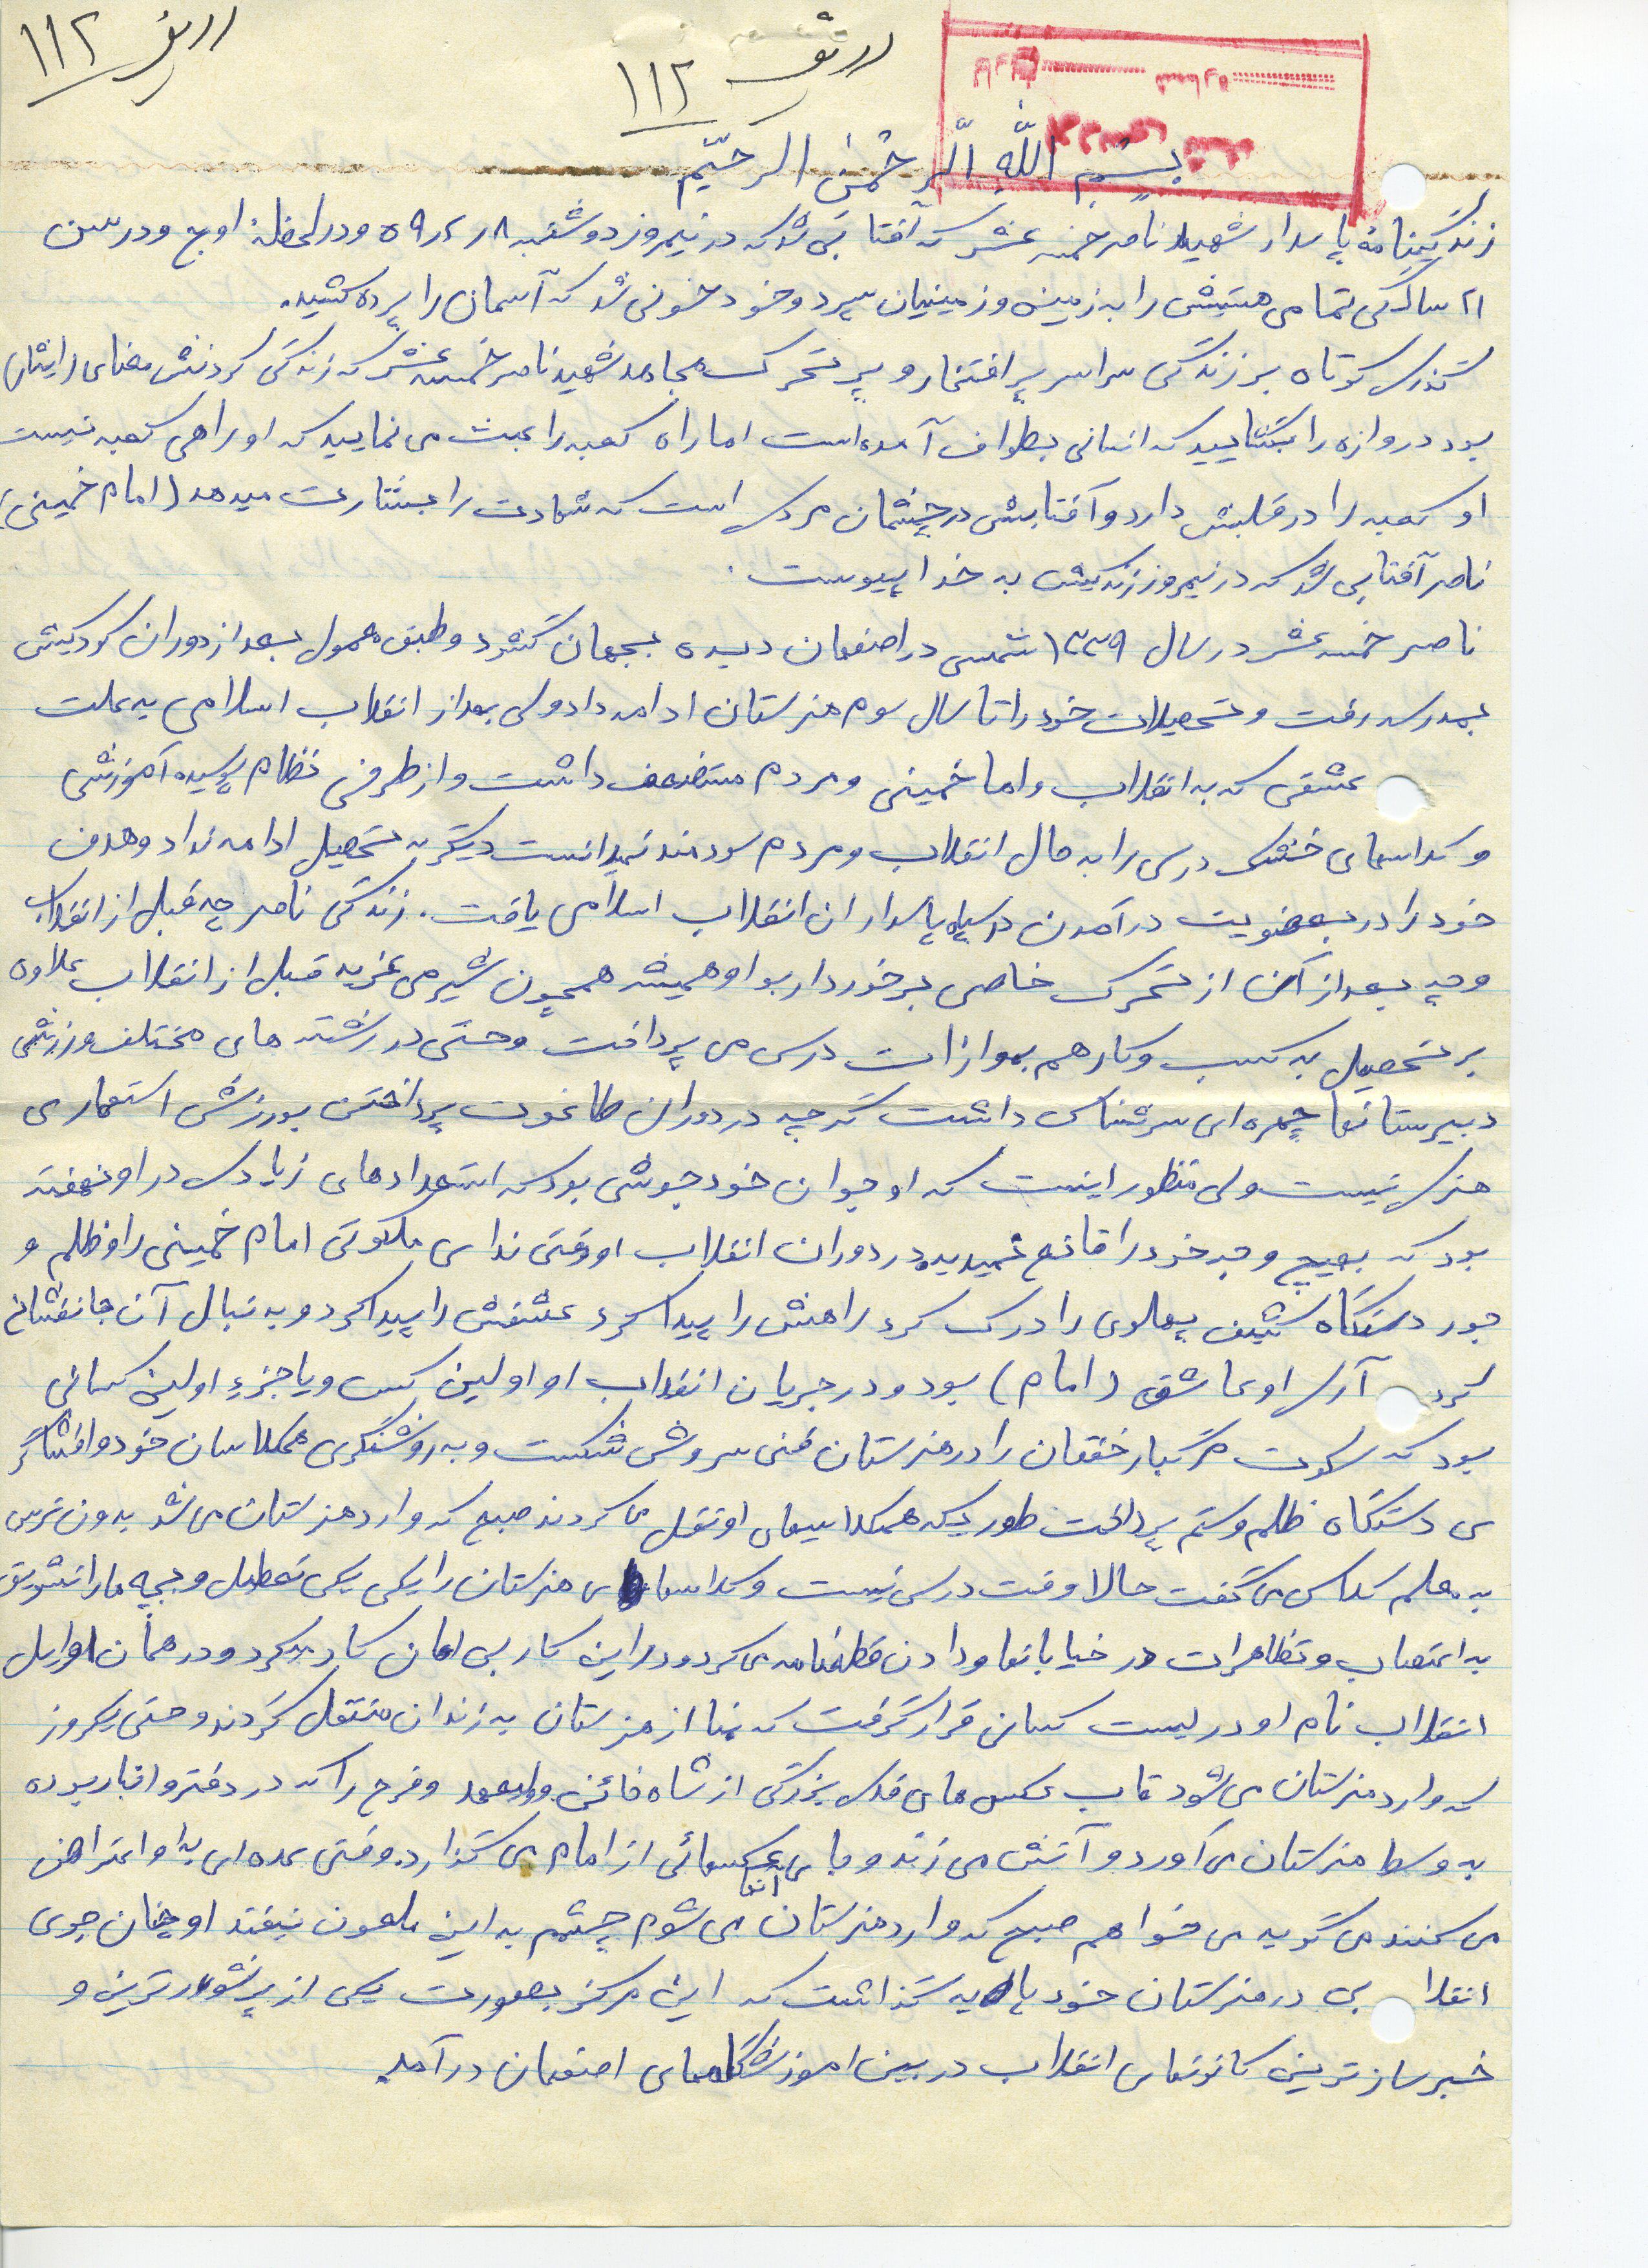 ۱۱۲
۱۱۲
تاریخ شماره
بِسْمِ اللَّهِ الرَّحْمٰنِ الرَّحیم
زندگینامهٔ پاسدار شهید ناصر خمسه عشر که آفتابی شد که در نیمروز دوشنبه ۵۹٫۲٫۸ و در لحظهٔ اوج و در سن
۲۱ سالگی تمامی هستیش را به زمین و زمینیان سپرد و خود خونی شد که آسمان را پرده کشید.
گذری کوتاه بر زندگی سراسر پر افتخار و پر تحرک مجاهد شهید ناصر خمسه عشر که زندگی کردنش معنای (ایثار)
بود دروازه را بگشایید که انسانی بطواف آمده است اما راه کعبه را عبث می نمایید که او راهی کعبه نیست
او کعبه را در قلبش دارد و آفتابش در چشمان مردی است که شهادت را بشارت میدهد (امام خمینی)
ناصر آفتابی شد که در نیمروز زندگیش به خدا پیوست.
ناصر خمسه عشر در سال ۱۳۳۹ شمسی در اصفهان دیده بجهان گشود و طبق معمول بعد از دوران کودکیش
بمدرسه رفت و تحصیلات خود را تا سال سوم هنرستان ادامه داد ولی بعد از انقلاب اسلامی به علت
عشقی که به انقلاب و اما خمینی و مردم مستضعف داشت و از طرفی نظام پوسیده آموزشی
و کلاسهای خشک درسی را به حال انقلاب و مردم سودمند نمیدانست دیگر به تحصیل ادامه نداد و هدف
خود را در بعضویت درآمدن در سپاه پاسداران انقلاب اسلامی یافت. زندگی ناصر چه قبل از انقلاب
و چه بعد از آن از تحرک خاصی برخوردار بود او همیشه همچون شیر می غرید قبل از انقلاب علاوه
بر تحصیل به کسب و کار هم بموازات درس می پرداخت و حتی در رشته های مختلف ورزشی
دبیرستانها چهره ای سرشناس داشت گرچه در دوران طاغوت پرداختن بورزش استعماری
هنری نیست ولی منظور اینست که او جوان خودجوشی بود که استعدادهای زیادی در او نهفته
بود که بهیچ وجه خود را قانع نمیدید در دوران انقلاب او وقتی ندای ملکوتی امام خمینی را و ظلم و
جور دستگاه کثیف پهلوی را درک کرد راهش را پیدا کرد عشقش را پیدا کرد و به دنبال آن جانفشانی
کرد آری او عاشق (امام) بود و در جریان انقلاب او اولین کس و یا جزء اولین کسانی
بود که سکوت مرگبار خفقان را در هنرستان فنی سروش شکست و به روشنگری همکلاسان خود و افشاگر
ی دستگاه ظلم و ستم پرداخت طوریکه همکلاسیهای او نقل می کردند صبح که وارد هنرستان می شد بدون ترس
به معلم کلاس می گفت حالا وقت درس نیست و کلاسهای هنرستان را یکی یکی تعطیل و بچه ها را تشویق
به اعتصاب و تظاهرات در خیابانها و دادن قطعنامه می کرد و در این کار بی امان کار میکرد و در همان اوایل
انقلاب نام او در لیست کسانی قرار گرفت که از هنرستان به زندان منتقل گردند و حتی یکروز
که وارد هنرستان می شود قاب عکس های بزرگی از شاه خائن و ولیعهد و فرح را که در دفتر و انبار بوده
به وسط هنرستان می آورد و آتش می زند و بجای آنها عکسهائی از امام می گذارد. وقتی عده ای به او اعتراض
می کنند می گوید می خواهم صبح که وارد هنرستان می شوم چشمم به این ملعون نیفتد او چنان جوی
انقلابی در هنرستان خود پایه گذاشت که این مرکز بصورت یکی از پرشورترین و
خبرسازترین کانونهای انقلاب در بین اموزشگاههای اصفهان درآمد.